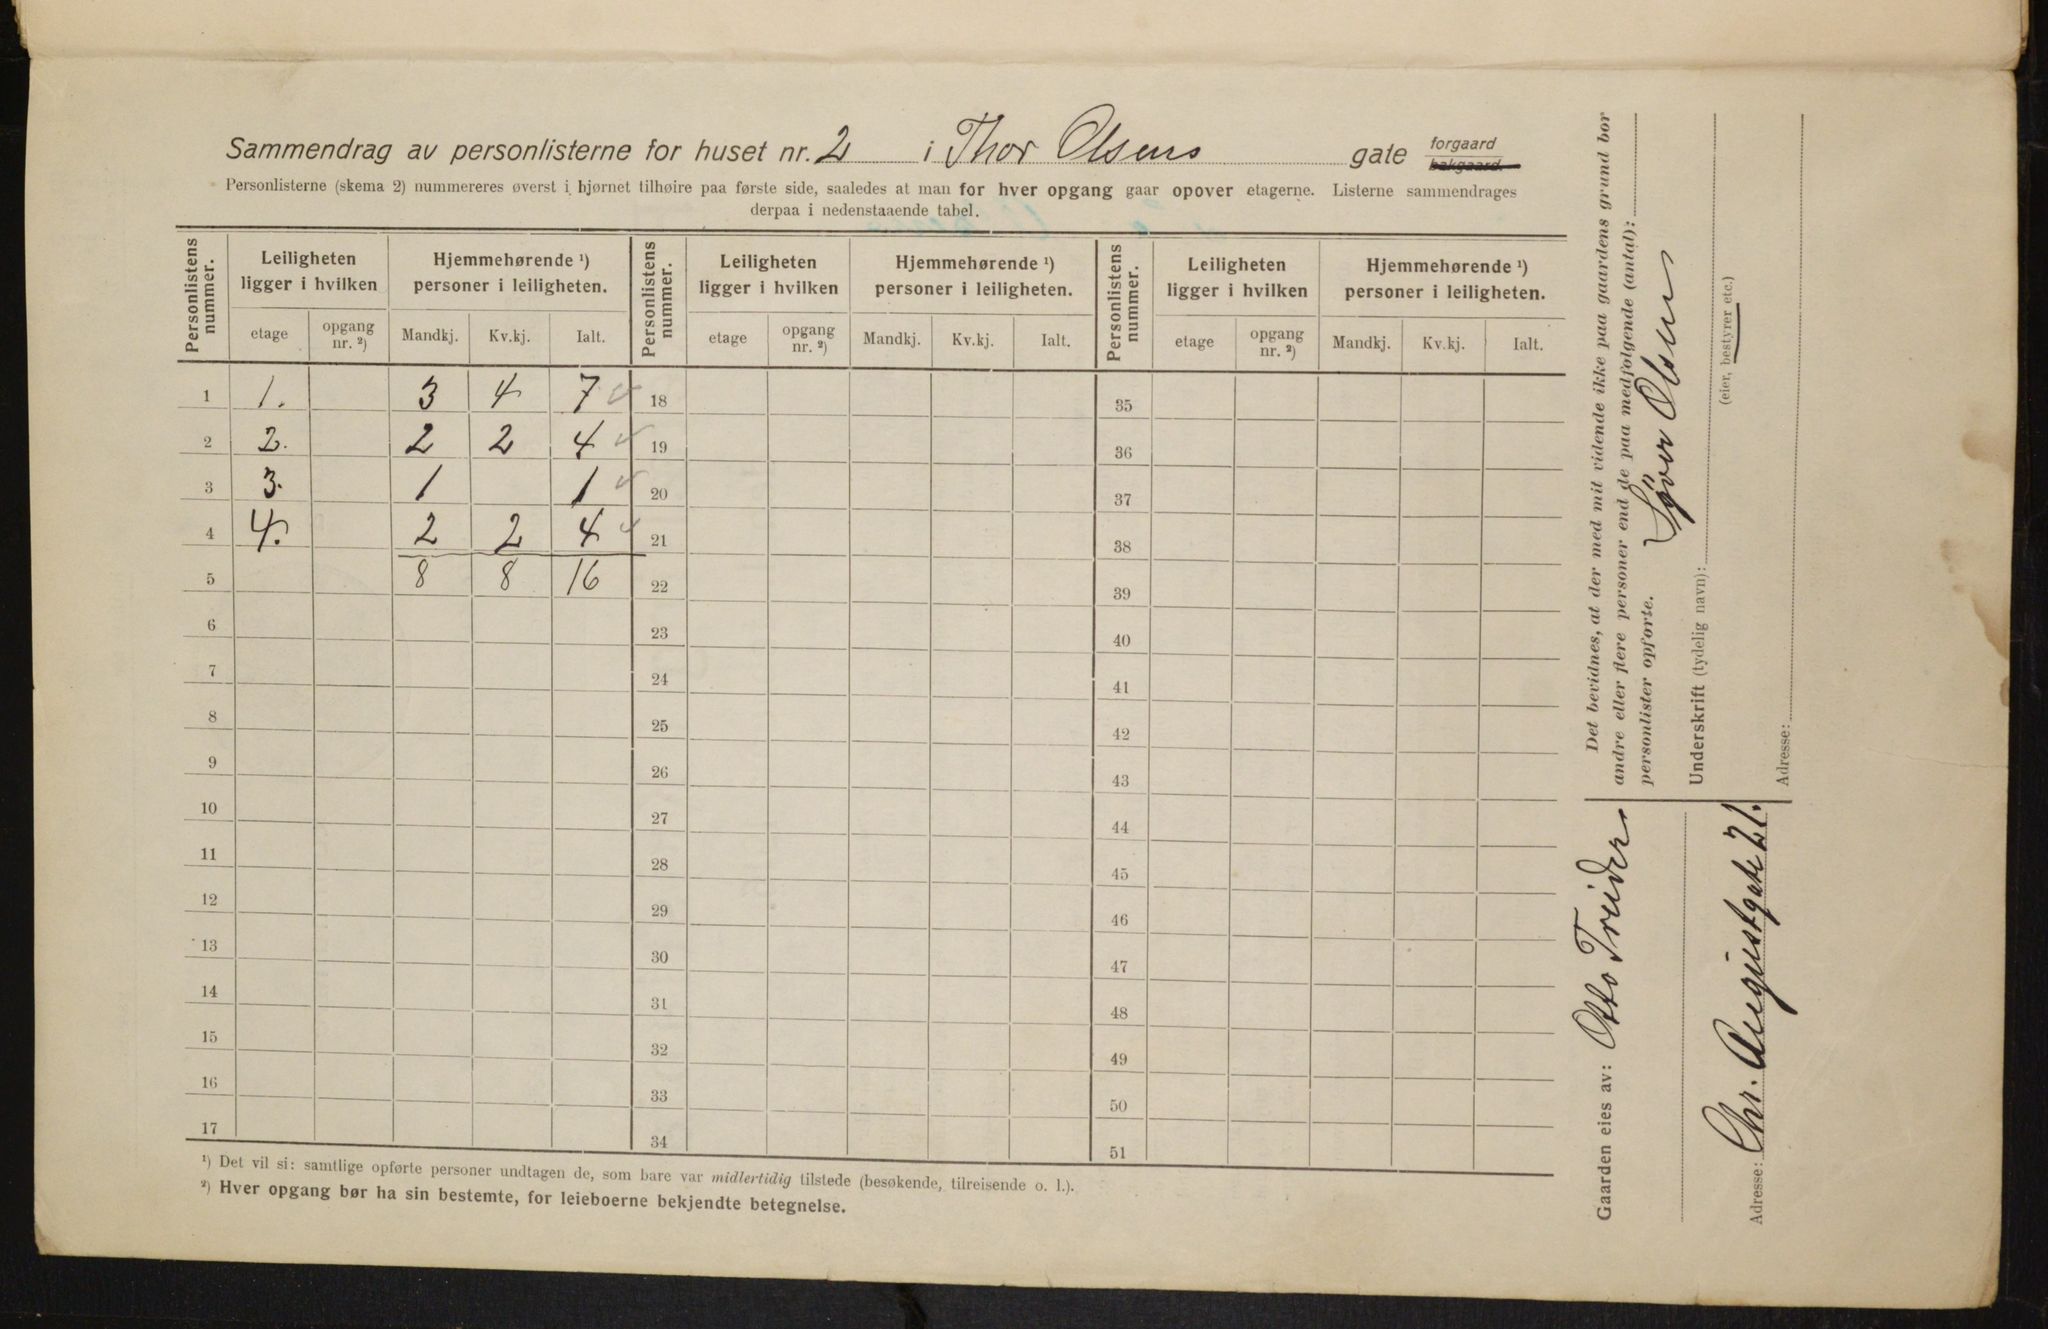 Sammendrag av personlisterne for huset nr. 2 i Thor Olsens gate forgaard bakgaard.
Personlisterne (skema 2) nummereres øverst i hjørnet tilhøire paa første side, saaledes at man for hver opgang gaar opover etagerne. Listerne sammendrages
derpaa i nedenstaaende tabel.
Personlistens nummer. Leiligheten ligger i hvilken Hjemmehørende ¹) personer i leiligheten. Personlistens nummer. Leiligheten ligger i hvilken Hjemmehørende ¹) personer i leiligheten. Personlistens nummer. Leiligheten ligger i hvilken Hjemmehørende ¹) personer i leiligheten.
etage opgang nr. ²) Mandkj. Kv.kj. Ialt. etage opgang nr. ²) Mandkj. Kv.kj. Ialt. etage opgang nr. ²) Mandkj. Kv.kj. Ialt.
1 1. 3 4 7 18 35
2 2. 2 2 4 19 36
3 3. 1 1 20 37
4 4. 2 2 4 21 38
5 8 8 16 22 39
6 23 40
7 24 41
8 25 42
9 26 43
10 27 44
11 28 45
12 29 46
13 30 47
14 31 48
15 32 49
16 33 50
17 34 51
¹) Det vil si: samtlige opførte personer undtagen de, som bare var midlertidig tilstede (besøkende, tilreisende o. l.).
²) Hver opgang bør ha sin bestemte, for leieboerne bekjendte betegnelse.
Det bevidnes, at der med mit vidende ikke paa gaardens grund bor
andre eller flere personer end de paa medfølgende (antal):
personlister opførte.
Olsen
Underskrift (tydelig navn):
(eier, bestyrer etc.)
Adresse:
Gaarden eies av: Otto Treider
Adresse: Chr. Augustgate 21.